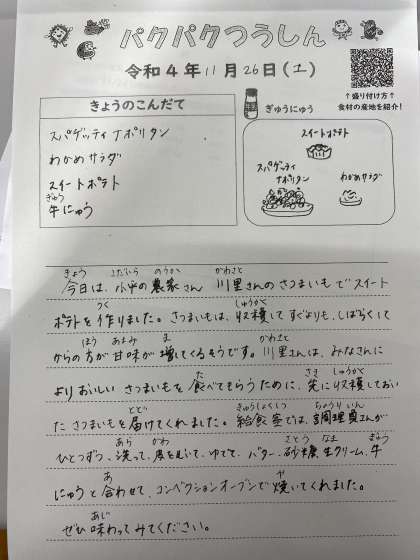 パクパクつうしん
令和4年11月26日(土)
↑盛り付け方↑
食材の産地を紹介!
きょうのこんだて
スパゲッティナポリタン
わかめサラダ
スイートポテト
ぎゅう
牛にゅう
ぎゅうにゅう
スイートポテト
スパゲッティ
ナポリタン
わかめサラダ
きょう こだいら のうか かわさと
今日は、小平の農家さん 川里さんのさつまいもでスイート
つく しゅうかく
ポテトを作りました。さつまいもは、収穫してすぐよりも、しばらくして
ほう あまみ ま かわさと
からの方が甘味が増してくるそうです。川里さんは、みなさんに
た さき しゅうかく
よりおいしい さつまいもを食べてもらうために、先に収穫しておい
とど きゅうしょくしつ ちょうりいん
た さつまいもを届けてくれました。給食室では、調理員さんが
あら かわ さとう なま ぎゅう
ひとつずつ、洗って、皮をむいて、ゆでて、バター、砂糖、生クリーム、牛
あ や
にゅうと合わせて、コンベクションオーブンで焼いてくれました。
あじ
ぜひ味わってみてください。